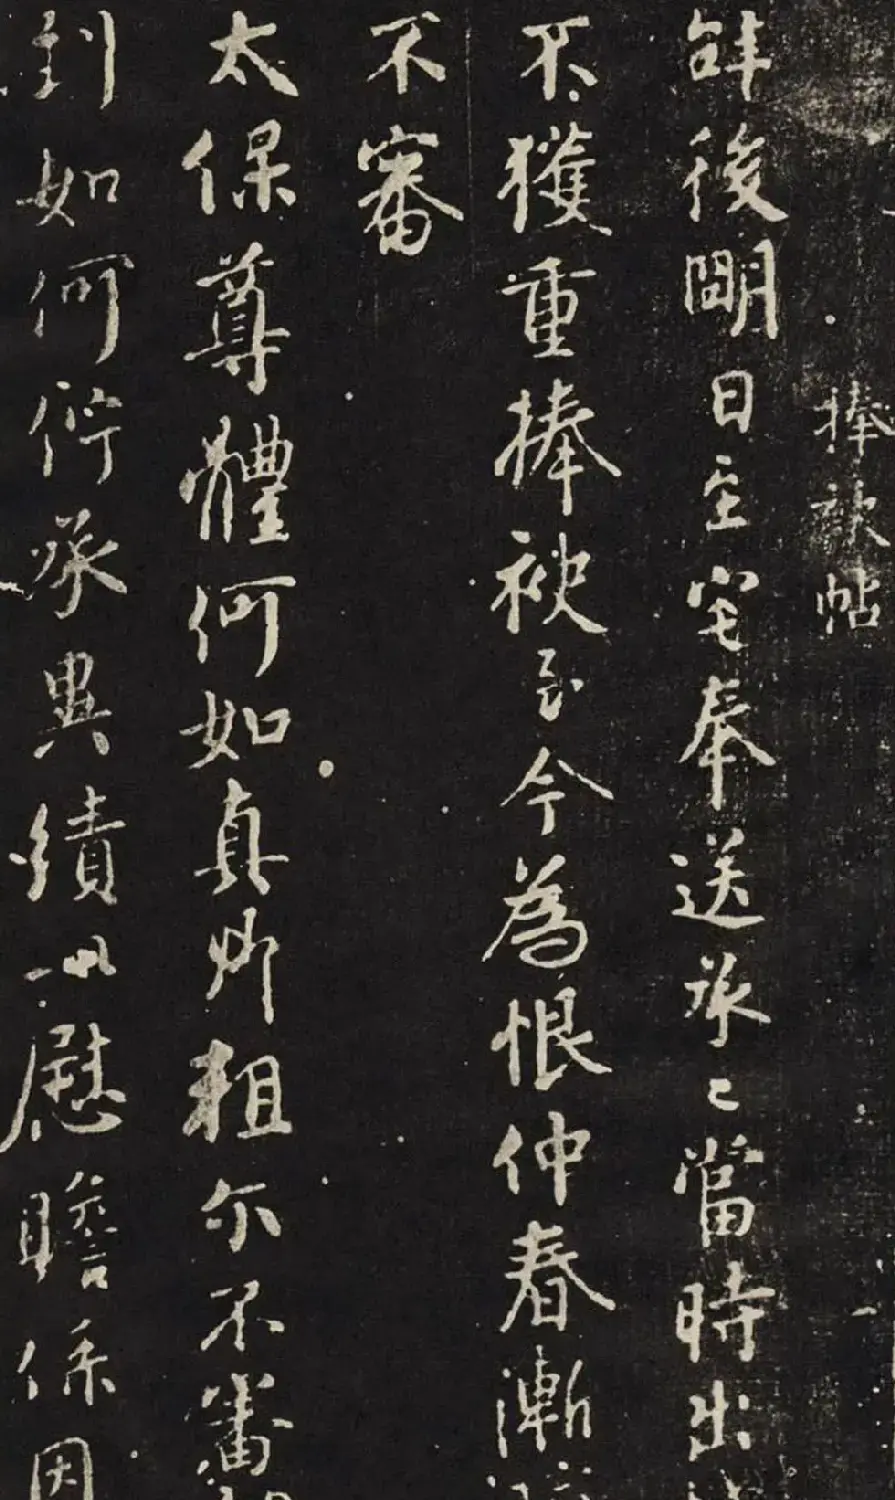 捧袂帖
後明日至宅奉送承已當時出
不獲重捧袂至今為恨仲春漸
不審
太保尊體何如真卿粗尔不審
到如何佇承異績以慰瞻係因